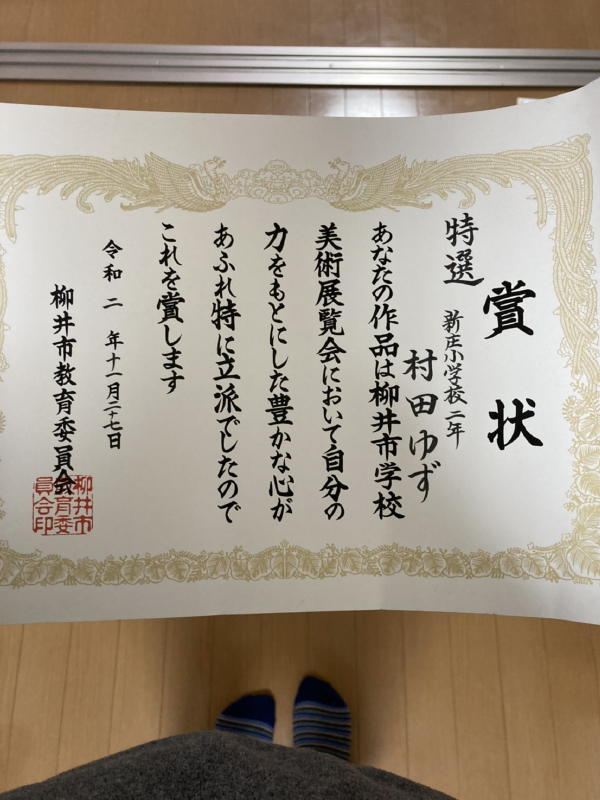 賞状
特選
新庄小学校二年
村田ゆず
あなたの作品は柳井市学校
美術展覧会において自分の
力をもとにした豊かな心が
あふれ特に立派でしたので
これを賞します
令和二年十一月二十七日
柳井市教育委員会
柳井市
教育委
員会印